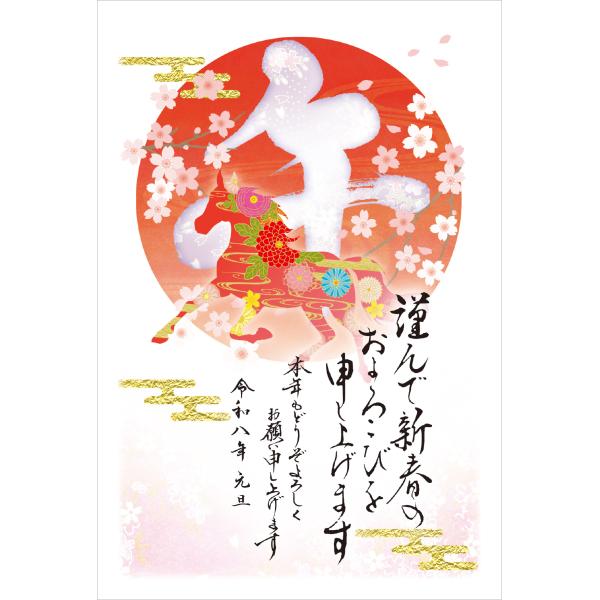 午
謹んで新春の
およろこびを
申し上げます
本年もどうぞよろしく
お願い申し上げます
令和八年 元旦